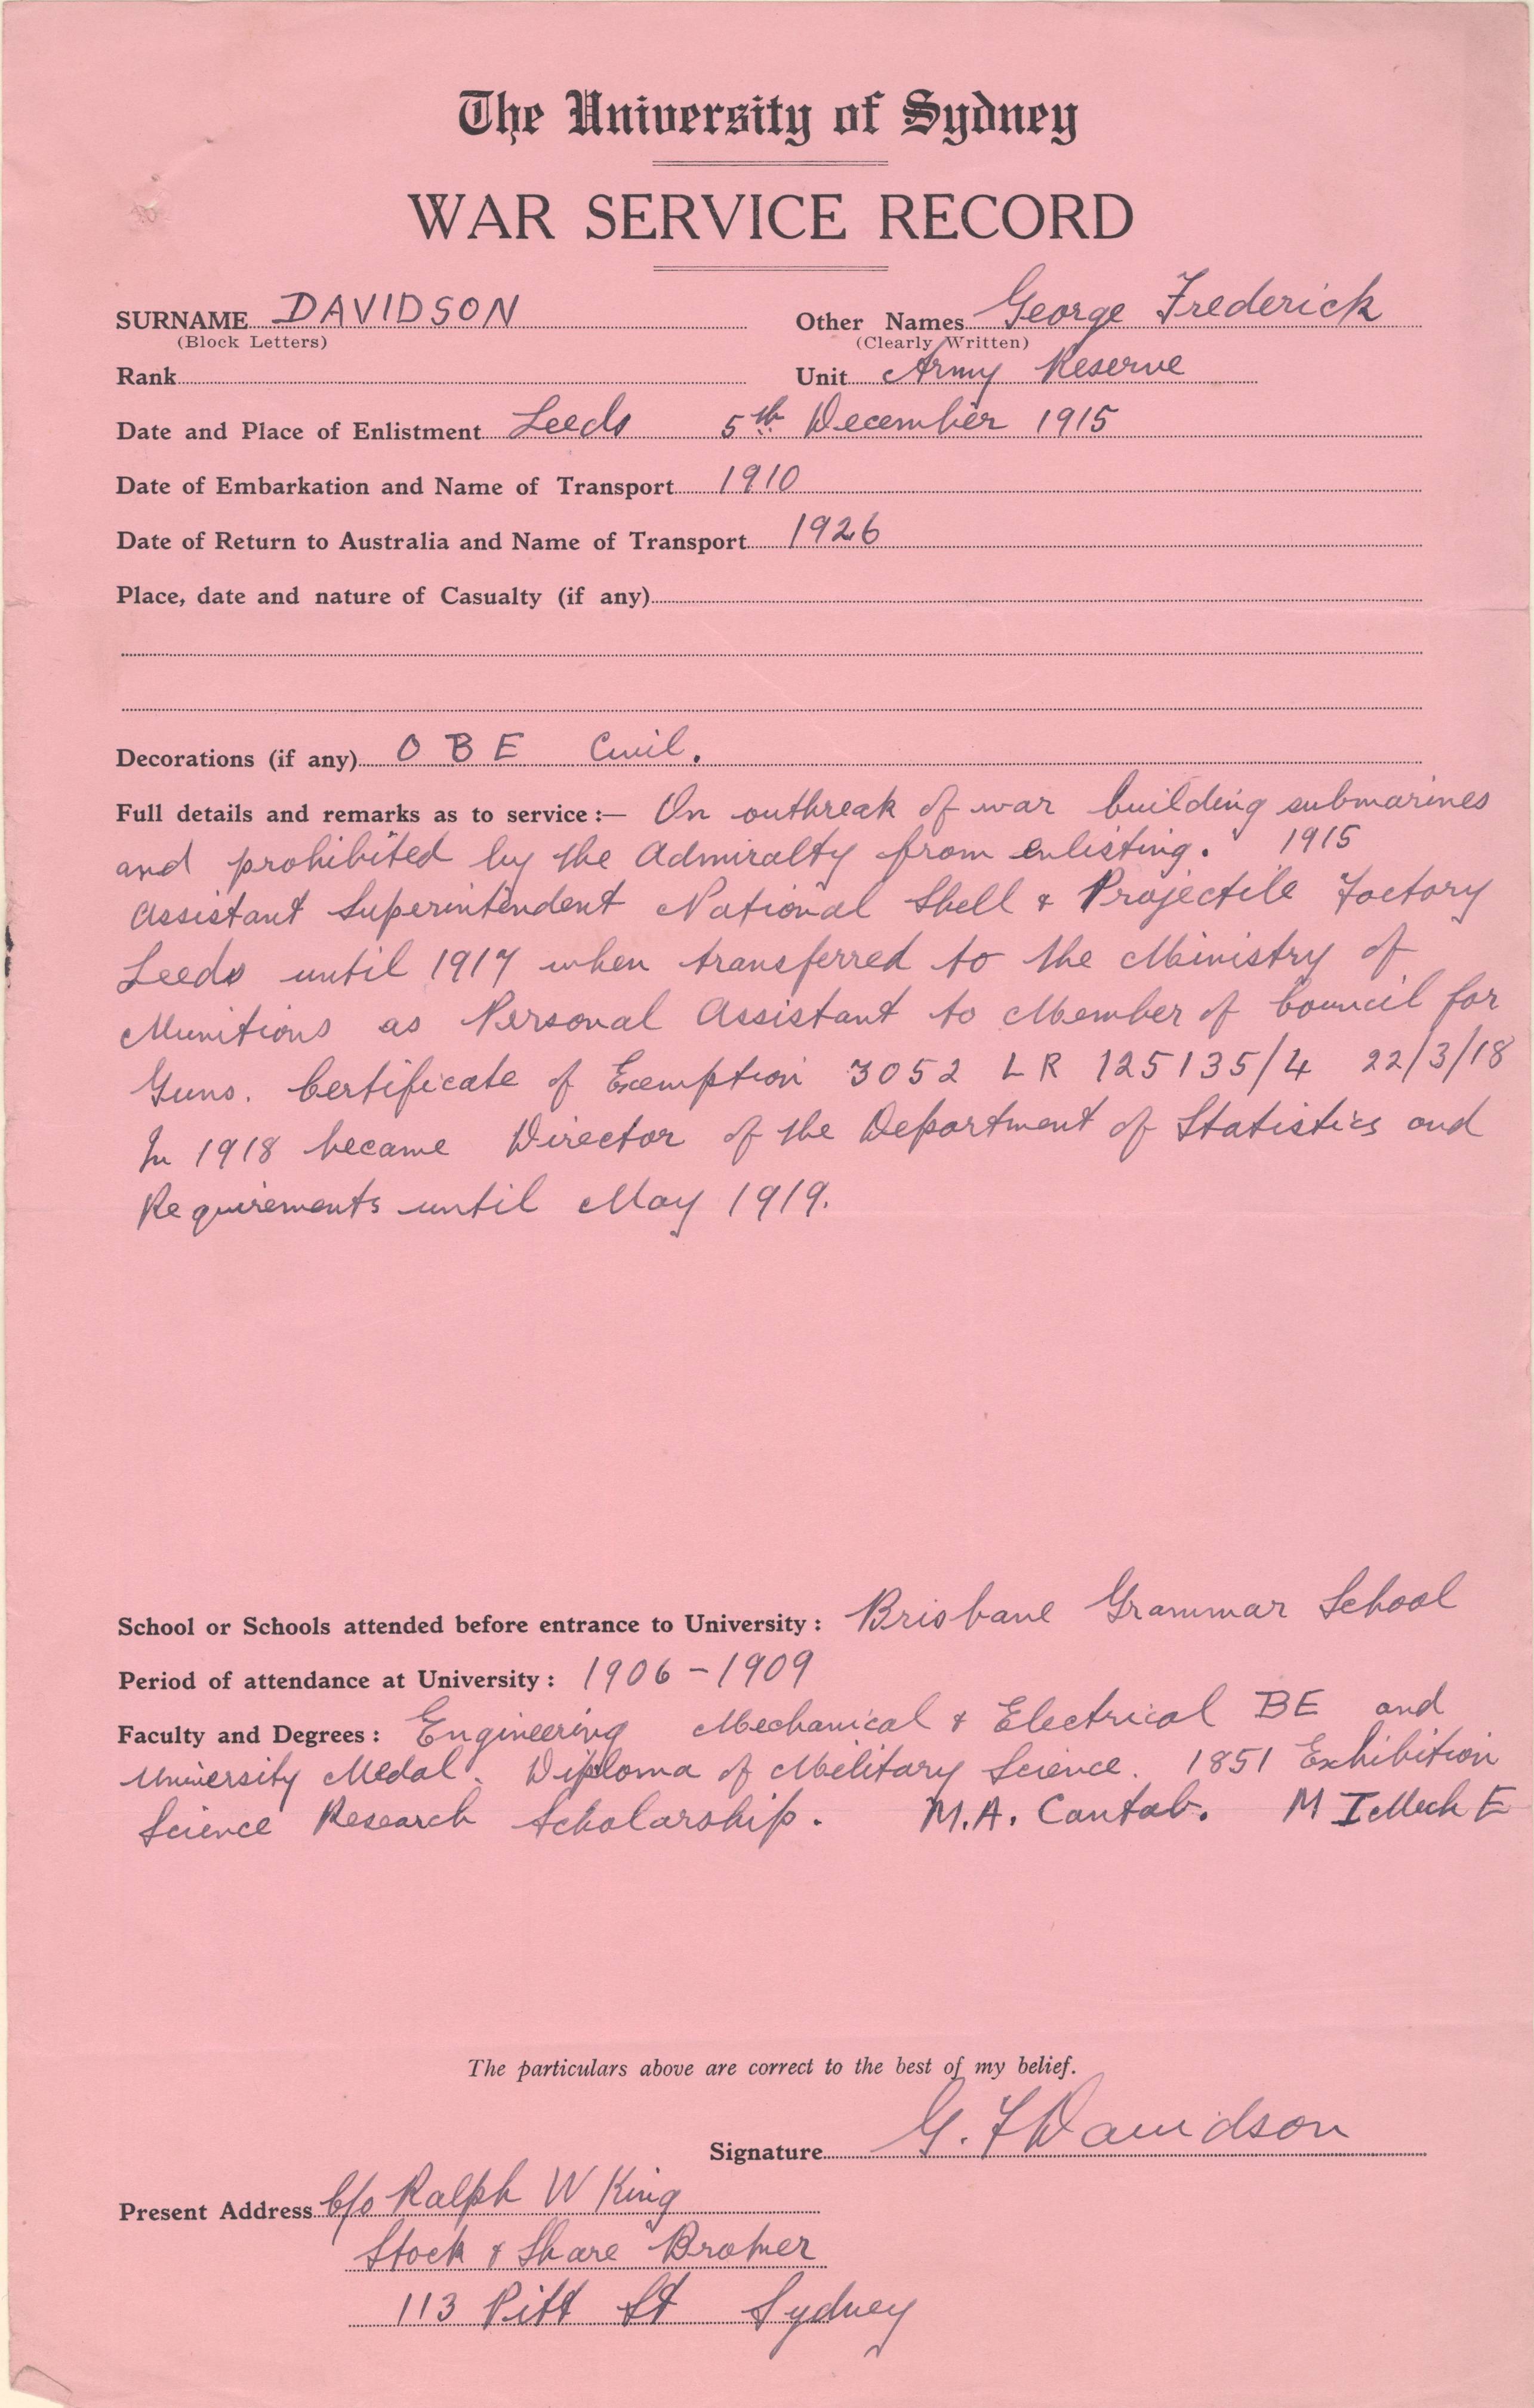 The University of Sydney
WAR SERVICE RECORD
SURNAME DAVIDSON Other Names George Frederick
(Block Letters) (Clearly Written)
Rank Unit Army Reserve
Date and Place of Enlistment Leeds 5th December 1915
Date of Embarkation and Name of Transport 1910
Date of Return to Australia and Name of Transport 1926
Place, date and nature of Casualty (if any)
Decorations (if any) O B E Civil.
Full details and remarks as to service :— On outbreak of war building submarines
and prohibited by the Admiralty from enlisting. 1915
Assistant Superintendent National Shell & Projectile Factory
Leeds until 1917 when transferred to the Ministry of
Munitions as Personal Assistant to Member of Council for
Guns. Certificate of Exemption 3052 LR 125135/4 22/3/18
In 1918 became Director of the Department of Statistics and
Requirements until May 1919.
School or Schools attended before entrance to University : Brisbane Grammar School
Period of attendance at University : 1906 - 1909
Faculty and Degrees : Engineering Mechanical & Electrical BE and
University Medal. Diploma of Military Science. 1851 Exhibition
Science Research Scholarship. M.A. Cantab. M I Mech E
The particulars above are correct to the best of my belief.
Signature G. F Davidson
Present Address C/o Ralph W King
Stock & Share Broker
113 Pitt St Sydney